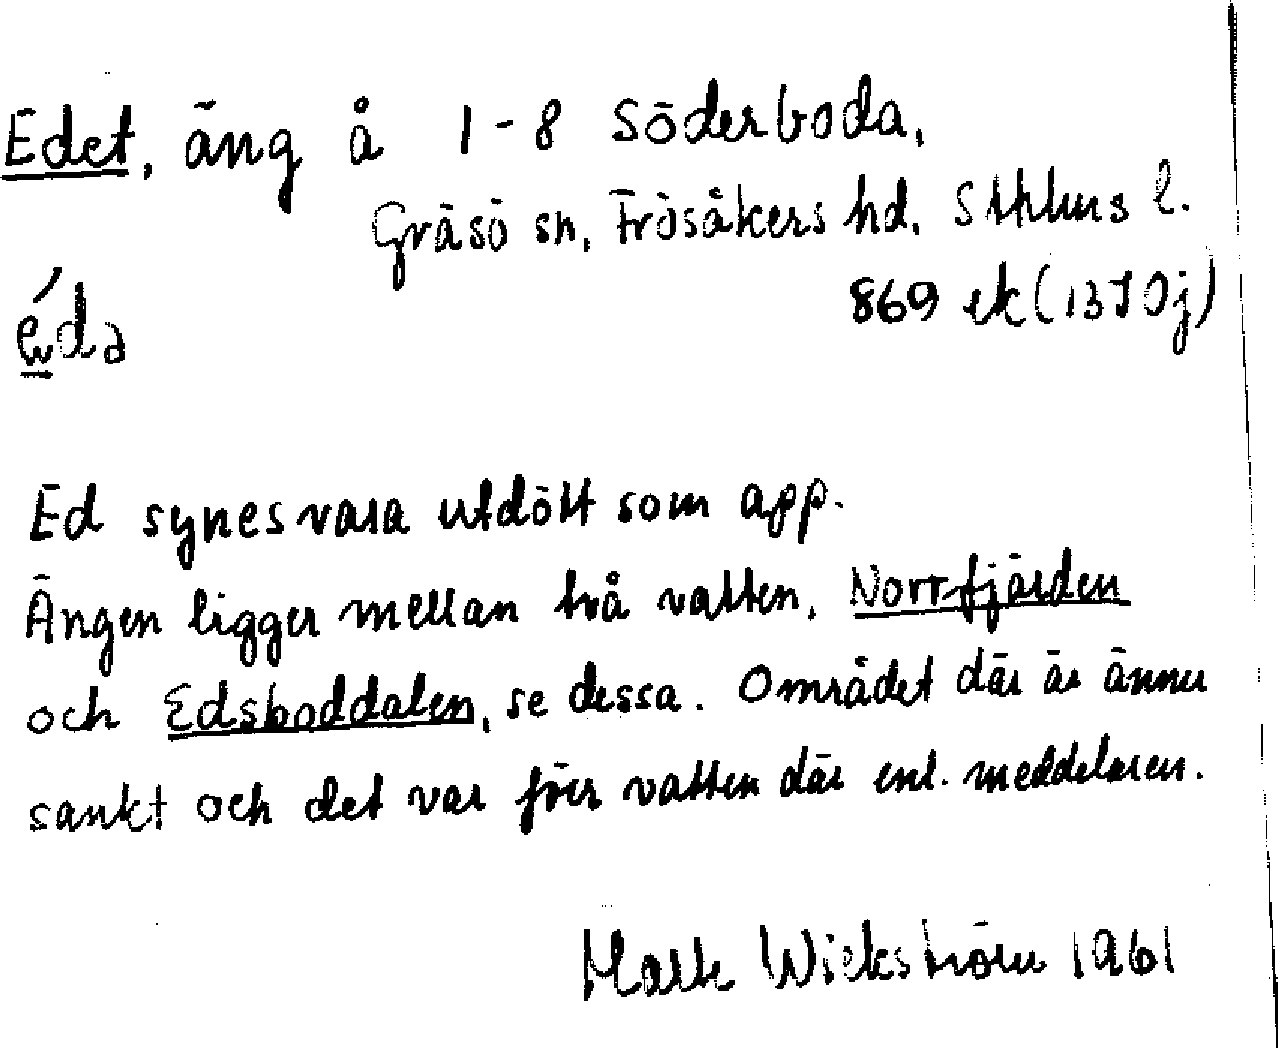 Edet, äng å 1-8 Söderboda,
Gräsö sn, Frösåkers hd, Sthlms l.
869 ek (13I 0j)
éda
Ed synes vara utdött som app.
Ängen ligger mellan två vatten, Norrfjärden
och Edsboddalen, se dessa. Området där är ännu
sankt och det var förr vatten där enl. meddelaren.
Wickström 1961